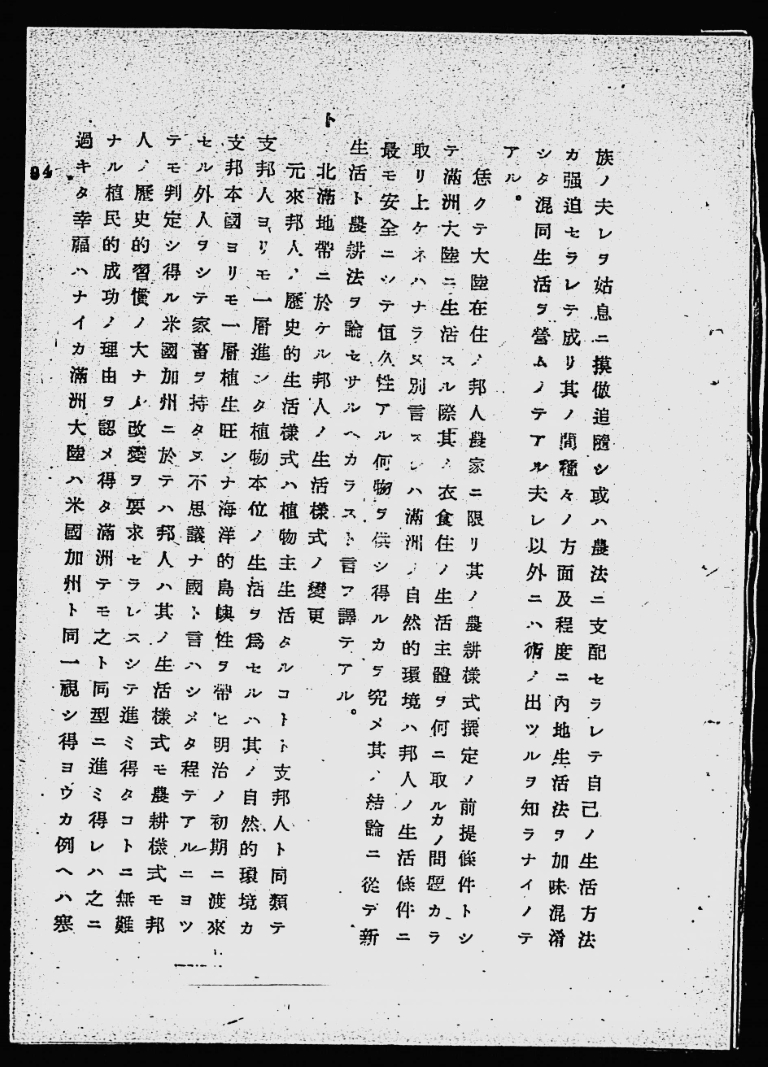 族ノ夫レヲ姑息ニ摸倣追隨シ或ハ農法ニ支配セラレテ自己ノ生活方法
カ强迫セラレテ成リ其ノ間種々ノ方面及程度ニ內地生活法ヲ加味混淆
シタ混同生活ヲ營ムノテアル夫レ以外ニハ術ノ出ツルヲ知ラナイノテ
アル。
恁クテ大陸在住ノ邦人農家ニ限リ其ノ農耕樣式撰定ノ前提條件トシ
テ滿洲大陸ニ生活スル際其ノ衣食住ノ生活主體ヲ何ニ取ルカノ問題カラ
取リ上ケネハナラヌ別言スレハ滿洲ノ自然的環境ハ邦人ノ生活條件ニ
最モ安全ニシテ恒久性アル何物ヲ供シ得ルカラ究メ其ノ結論ニ從テ新
生活ト農耕法ヲ論セサルヘカラスト言フ譯テアル。
ト
北滿地帶ニ於ケル邦人ノ生活樣式ノ變更
元來邦人ノ歷史的生活樣式ハ植物主生活タルコトト支邦人ト同類テ
支邦人ヨリモ一層進ンタ植物本位ノ生活ヲ爲セルハ其ノ自然的環境カ
支邦本國ヨリモ一層植生旺ンナ海洋的島嶼性ヲ帶ヒ明治ノ初期ニ渡來
セル外人ヲシテ家畜ヲ持タヌ不思議ナ國ト言ハシメタ程テアルニヨツ
テモ判定シ得ル米國加州ニ於テハ邦人ハ其ノ生活樣式モ農耕樣式モ邦
人ノ歷史的習慣ノ大ナル改變ヲ要求セラレスシテ進ミ得タコトニ無難
ナル植民的成功ノ理由ヲ認メ得タ滿洲テモ之ト同型ニ進ミ得レハ之ニ
過キタ幸福ハナイカ滿洲大陸ハ米國加州ト同一視シ得ヨウカ例ヘハ寒
94